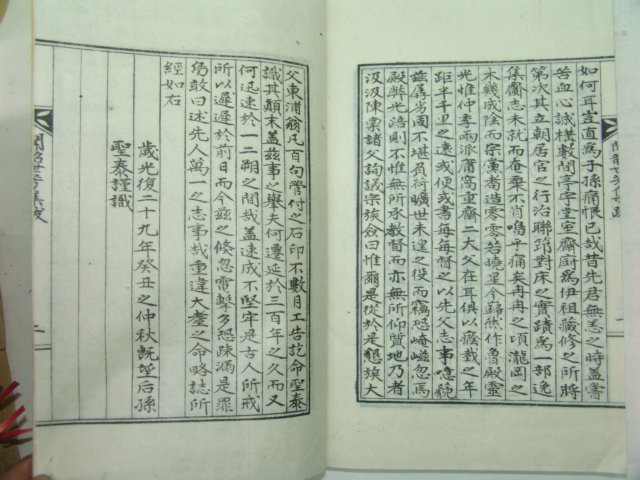 如何耳豈直爲子孫痛恨已哉昔先君無恙之時盖嘗
苦血心誠構數間亭宇堂室齋廚爲伊祖藏修之所將
第次其立朝居官之行治聯笻對床之實蹟爲一部逸
集齎志未就而奄棄不肖嗚乎痛矣冉冉之頃瀧岡之
木幾成陰而宗黨耆造零零若曉星今歸然作魯殿靈
光惟仲季兩派庸高重齋二大父在耳俱以癃耋之年
距半千里之遠或便或書每每督之以先父志事噫藐
玆孱劣固不堪負荷曠世未遑之役而竊恐崦嵫忽焉
殿與光語則不惟無所承教督而亦無所仰質地乃者
汲汲陳稟諸父詢議宗族僉曰惟爾是從於是懇族大
父東浦翁凡百句管付之石印不數月工告訖命聖泰
識其顚末盖玆事之擧夫何遷延於三百年之久而又
何迅速於一二朔之間哉盖速成不堅牢是古人所戒
所以遲遲於前日而今玆之倏忽電擊乃恐疎漏是罪
曷敢曰述先人萬一之志事哉重違大耋之命略誌所
經如右
歲光復二十九年癸丑之仲秋旣望后孫
聖泰謹識